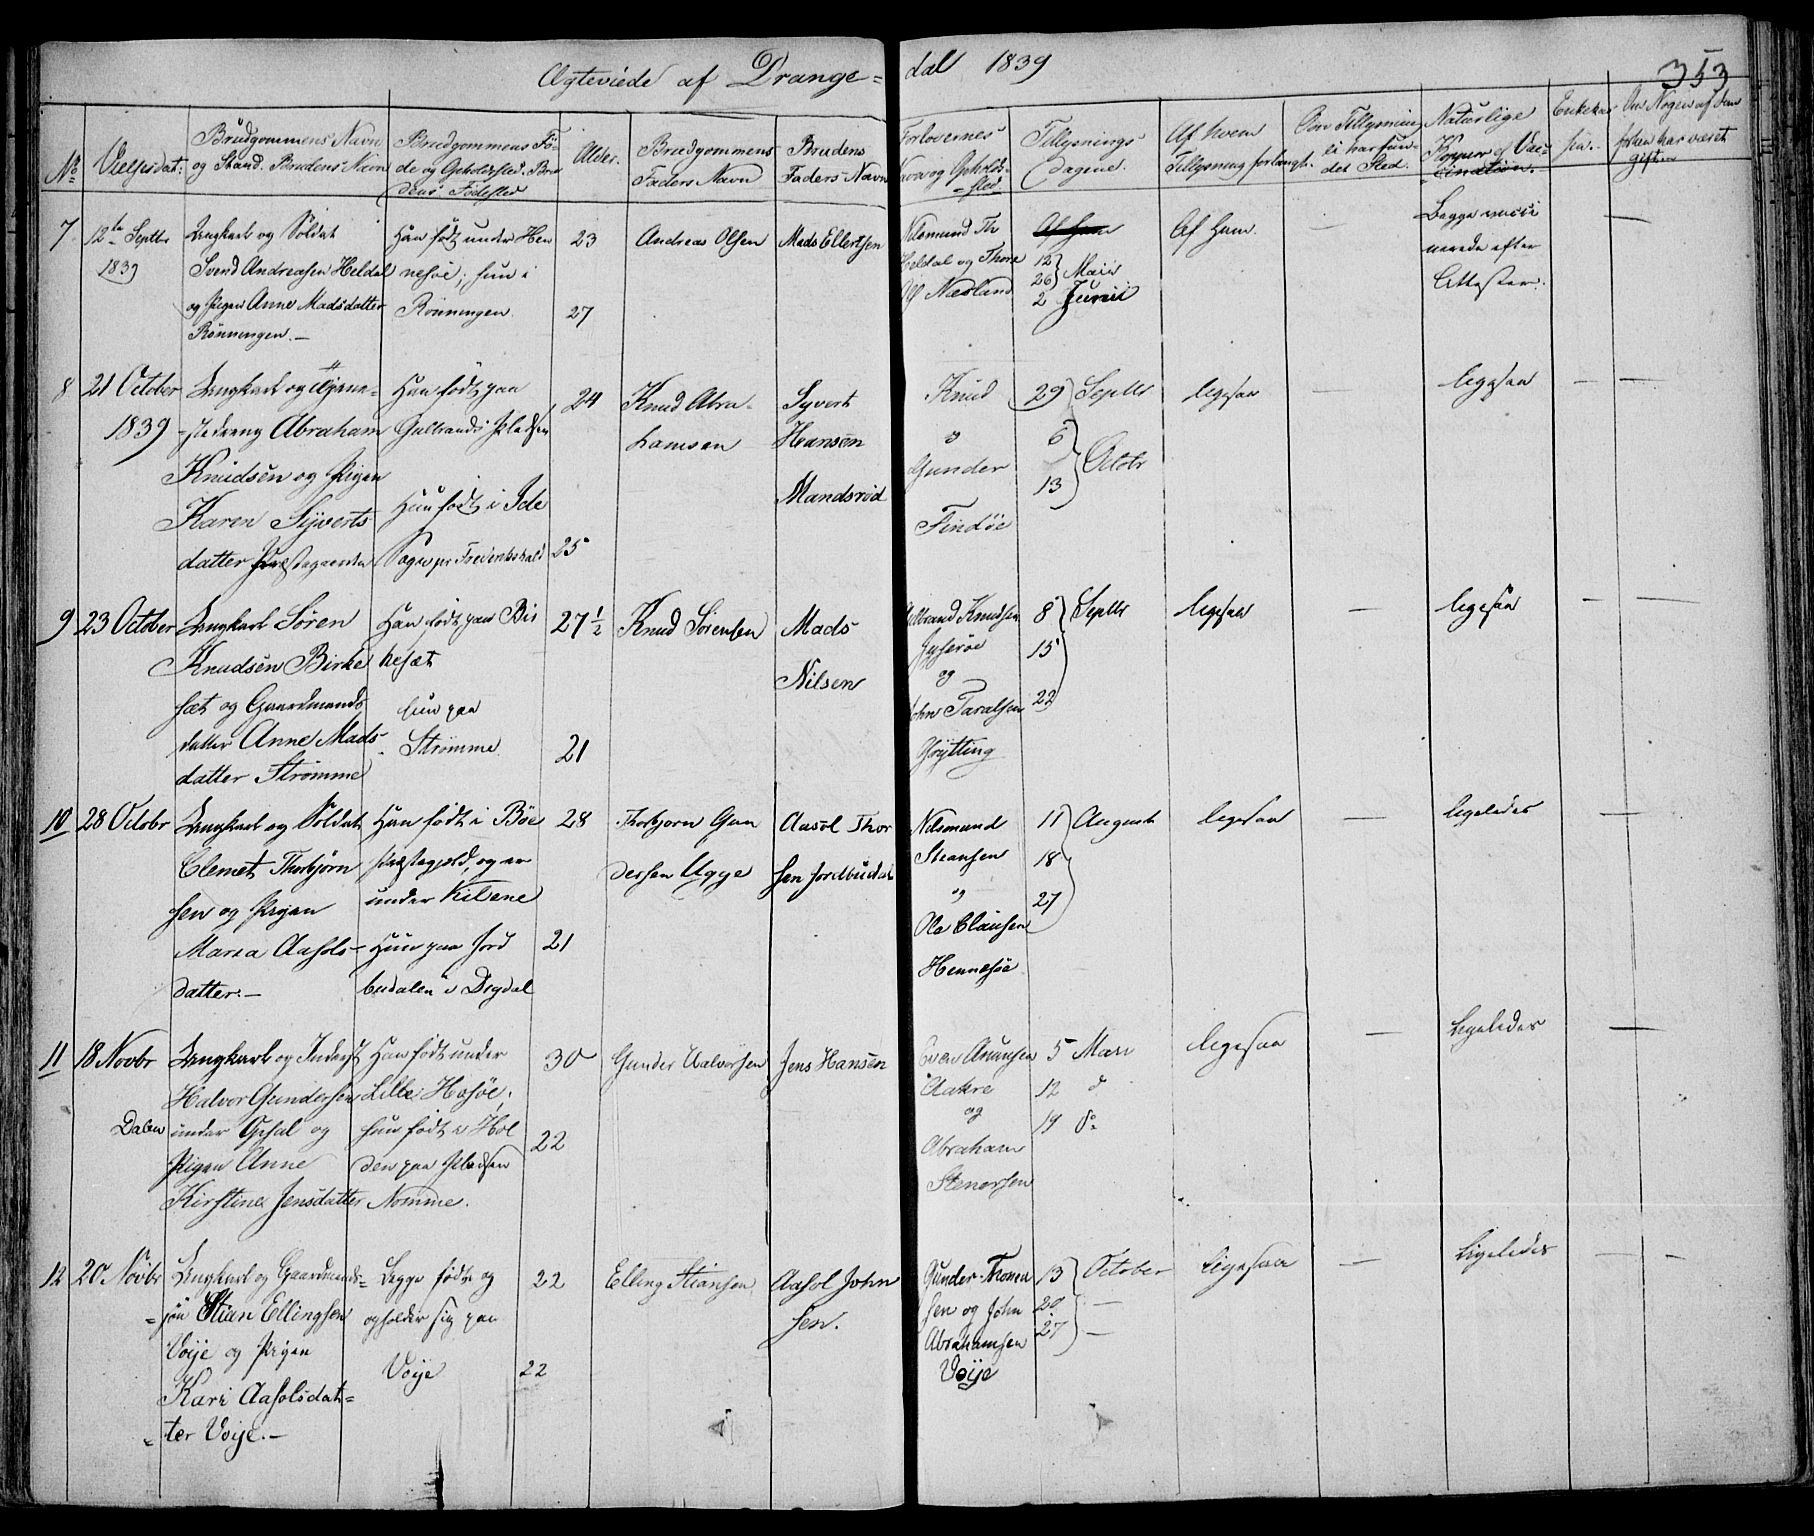 Ægteviede af Drange=dal 1839
353
No
Vielsesdat:
Brudgommens Navn
og Stand. Brudens Navn
Brudgommens Fö-
de og Opholdssted. Bru
dens Födested
Alder.
Brudgommens
Faders Navn
Brudens
Faders Navn
Forlovernes
Navn og Opholds-
sted
Tillysnings
Dagene.
Af hvem
Tillysning forlangt.
Om Tillysning
ei har fun-
det Sted.
Naturlige
Kopper ell Vac-
cination.
Om Nogen af dem
forhen har været
gift
7
12te Septbr
1839
Ungkarl og Soldat
Svend Andreasen Heldal
og Pigen Anne Madsdatter
Rönningen.–
Han födt under Hen
nesöe; hun i
Rönningen
23
27
Andreas Olsen
Mads Ellertsen
Heldal og Thore
Næsland
12
26 Maii
2 Junii
Af ham.
–
Begge vacci
nerede efter
Attester.
–
8
21 October
1839
Ungkarl og
Abraham
Knudsen og Pigen
Karen Syverts
datter Præstegaarden
Han födt paa
Gulbrands Pladsen
Hun födt i Ide
Sogn pr Frederikshald
24
25
Knud Abra-
hamsen
Syvert
Hansen
Mandsröd
Knud
og
Gunder
Findöe
29 Septbr
6
13 Octobr
ligesaa
–
ligesaa
– –
9
23 October
Ungkarl Sören
Knudsen Birke
sæt og Gaardmands
datter Anne Mads-
datter Strömme
Han födt paa Bir
kesæt
hun paa
Strömme
27½
21
Knud Sörensen
Mads
Nilsen
Knudsen
og
John Taralsen
8 Septbr
15
22
ligesaa
–
ligesaa
– –
10
28 Octobr
Ungkarl og Soldat
Clemet Thorbjörn
sen og Pigen
Maria Aasols-
datter.–
Han födt i Böe
Præstegjeld, og er
under Kilene
Hun paa Jord
budalen i Degdal
28
21
Thorbjorn Gun
dersen Ugge
Aasol Thor
sen Jordbudal
Steansen
og
Ole Clausen
Hennesöe
11 August
18
27
ligesaa
–
ligeledes
–
11
18 Novbr
Ungkarl og Inderst
Halvor Gundersen
Dalen under Opsal og
Pigen Anne
Kirstine Jensdatter
Han födt under
Lille Hosöe;
hun födt i Hol
den paa Pladsen
Nomme.
30
22
Gunder Halvorsen
Jens Hansen
Even Anunsen
Aakre
og
Abraham
Stenersen
5 Mai
12 do
19 do
ligesaa
–
Ligeledes
–
12
20 Novbr
Ungkarl og Gaardmands=
sön Stian Ellingsen
Voije og Pigen
Kari Aasolsdat=
ter Voije.–
Begge födte og
opholder sig paa
Voije
22
22
Elling Stiansen
Aasol John
sen.
Gunder Thomas
sen og John
Abrahamsen
Voije
13 October
20 –
27 –
ligesaa
–
Ligeledes
– –